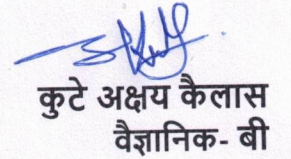 कुटे अक्षय कैलास
वैज्ञानिक- बी